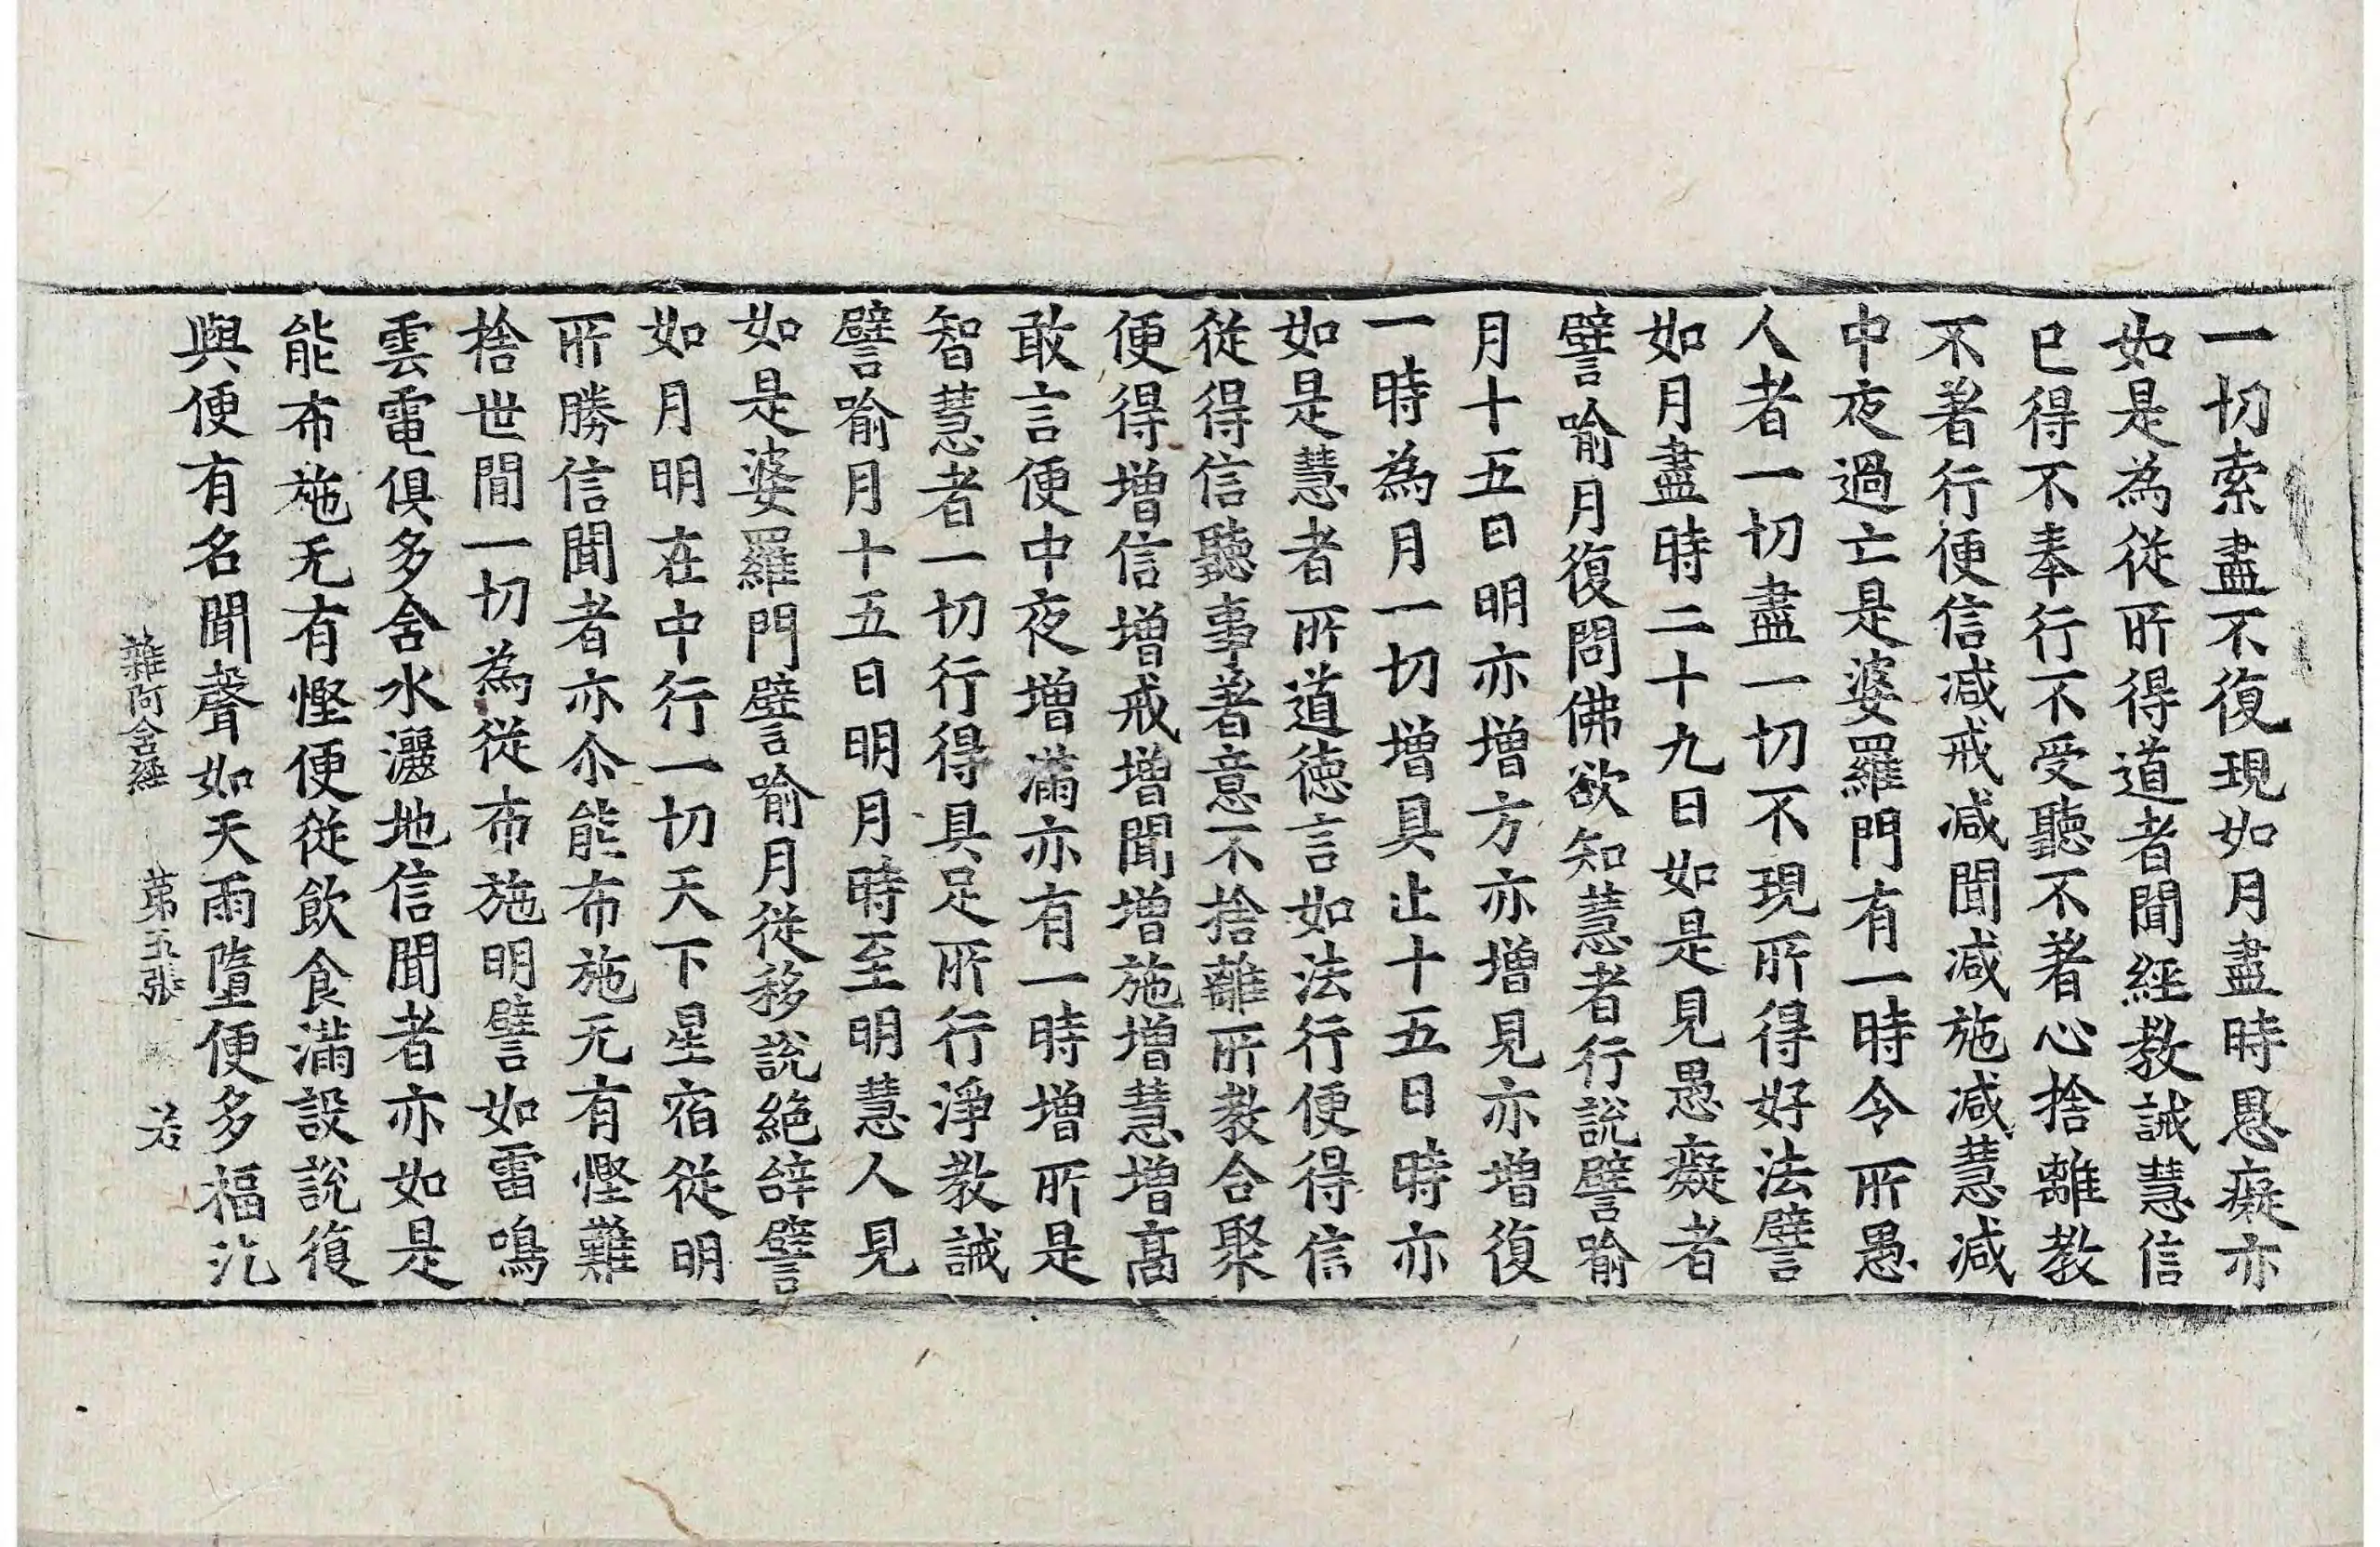 一切索盡不復現如月盡時愚癡亦
如是為從所得道者聞經教誡慧信
已得不奉行不受聽不著心捨離教
不著行便信減戒減聞減施減慧減
中夜過亡是婆羅門有一時令所愚
人者一切盡一切不現所得好法譬
如月盡時二十九日如是見愚癡者
譬喻月復問佛欲知慧者行說譬喻
月十五日明亦增方亦增見亦增復
一時為月一切增具止十五日時亦
如是慧者所道德言如法行便得信
從得信聽事著意不捨離所教合聚
便得增信增戒增聞增施增慧增高
敢言便中夜增滿亦有一時增所是
智慧者一切行得具足所行淨教誡
譬喻月十五日明月時至明慧人見
如是婆羅門譬喻月從移說絕辞譬
如月明在中行一切天下星宿從明
所勝信聞者亦尒能布施无有慳難
捨世間一切為從布施明譬如雷鳴
雲電俱多含水灑地信聞者亦如是
能布施无有慳便從飲食滿設說復
與便有名聞聲如天雨墮便多福汔
雜阿含經 苐五張 若